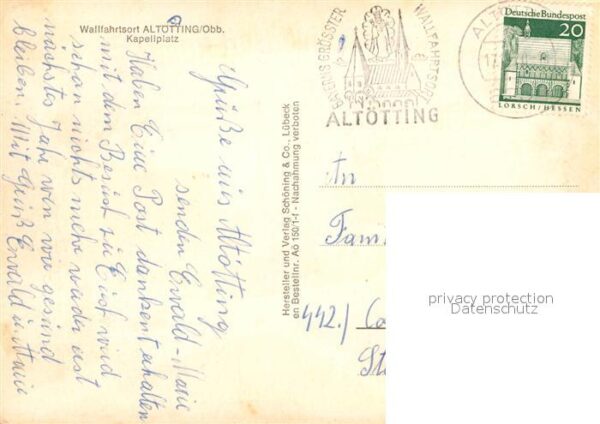 Wallfahrtsort ALTÖTTING/Obb.
Kapellplatz
Grüße aus Altötting
senden Ewald-Marie
Haben Eure Post dankent erhalten
mit dem Besuch zu Euch wird
schon nichts mehr wieder erst
nächstes Jahr wen wir gesund
bleiben. Mit Gruß Ewald u. Marie
Hersteller und Verlag Schöning & Co., Lübeck
en Bestellnr. Aö 150/1-f - Nachahmung verboten
BAYERNS GRÖSSTER WALLFAHRTSORT
ALTÖTTING
ALTÖ
17.
Deutsche Bundespost
20
LORSCH/HESSEN
An
Fami
442./ Co
St
privacy protection
Datenschutz